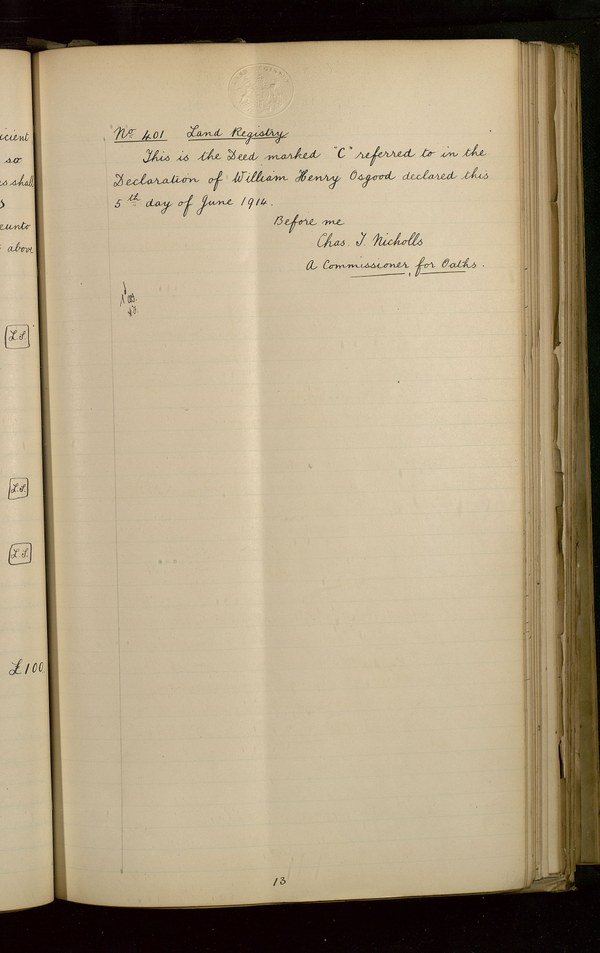 icient
so
s shall
eunto
above
L.S.
L.S.
L.S.
£100
No 401 Land Registry
This is the Deed marked "C" referred to in the
Declaration of William Henry Osgood declared this
5th day of June 1914.
Before me
Chas. T. Nicholls
A Commissioner for Oaths.
13